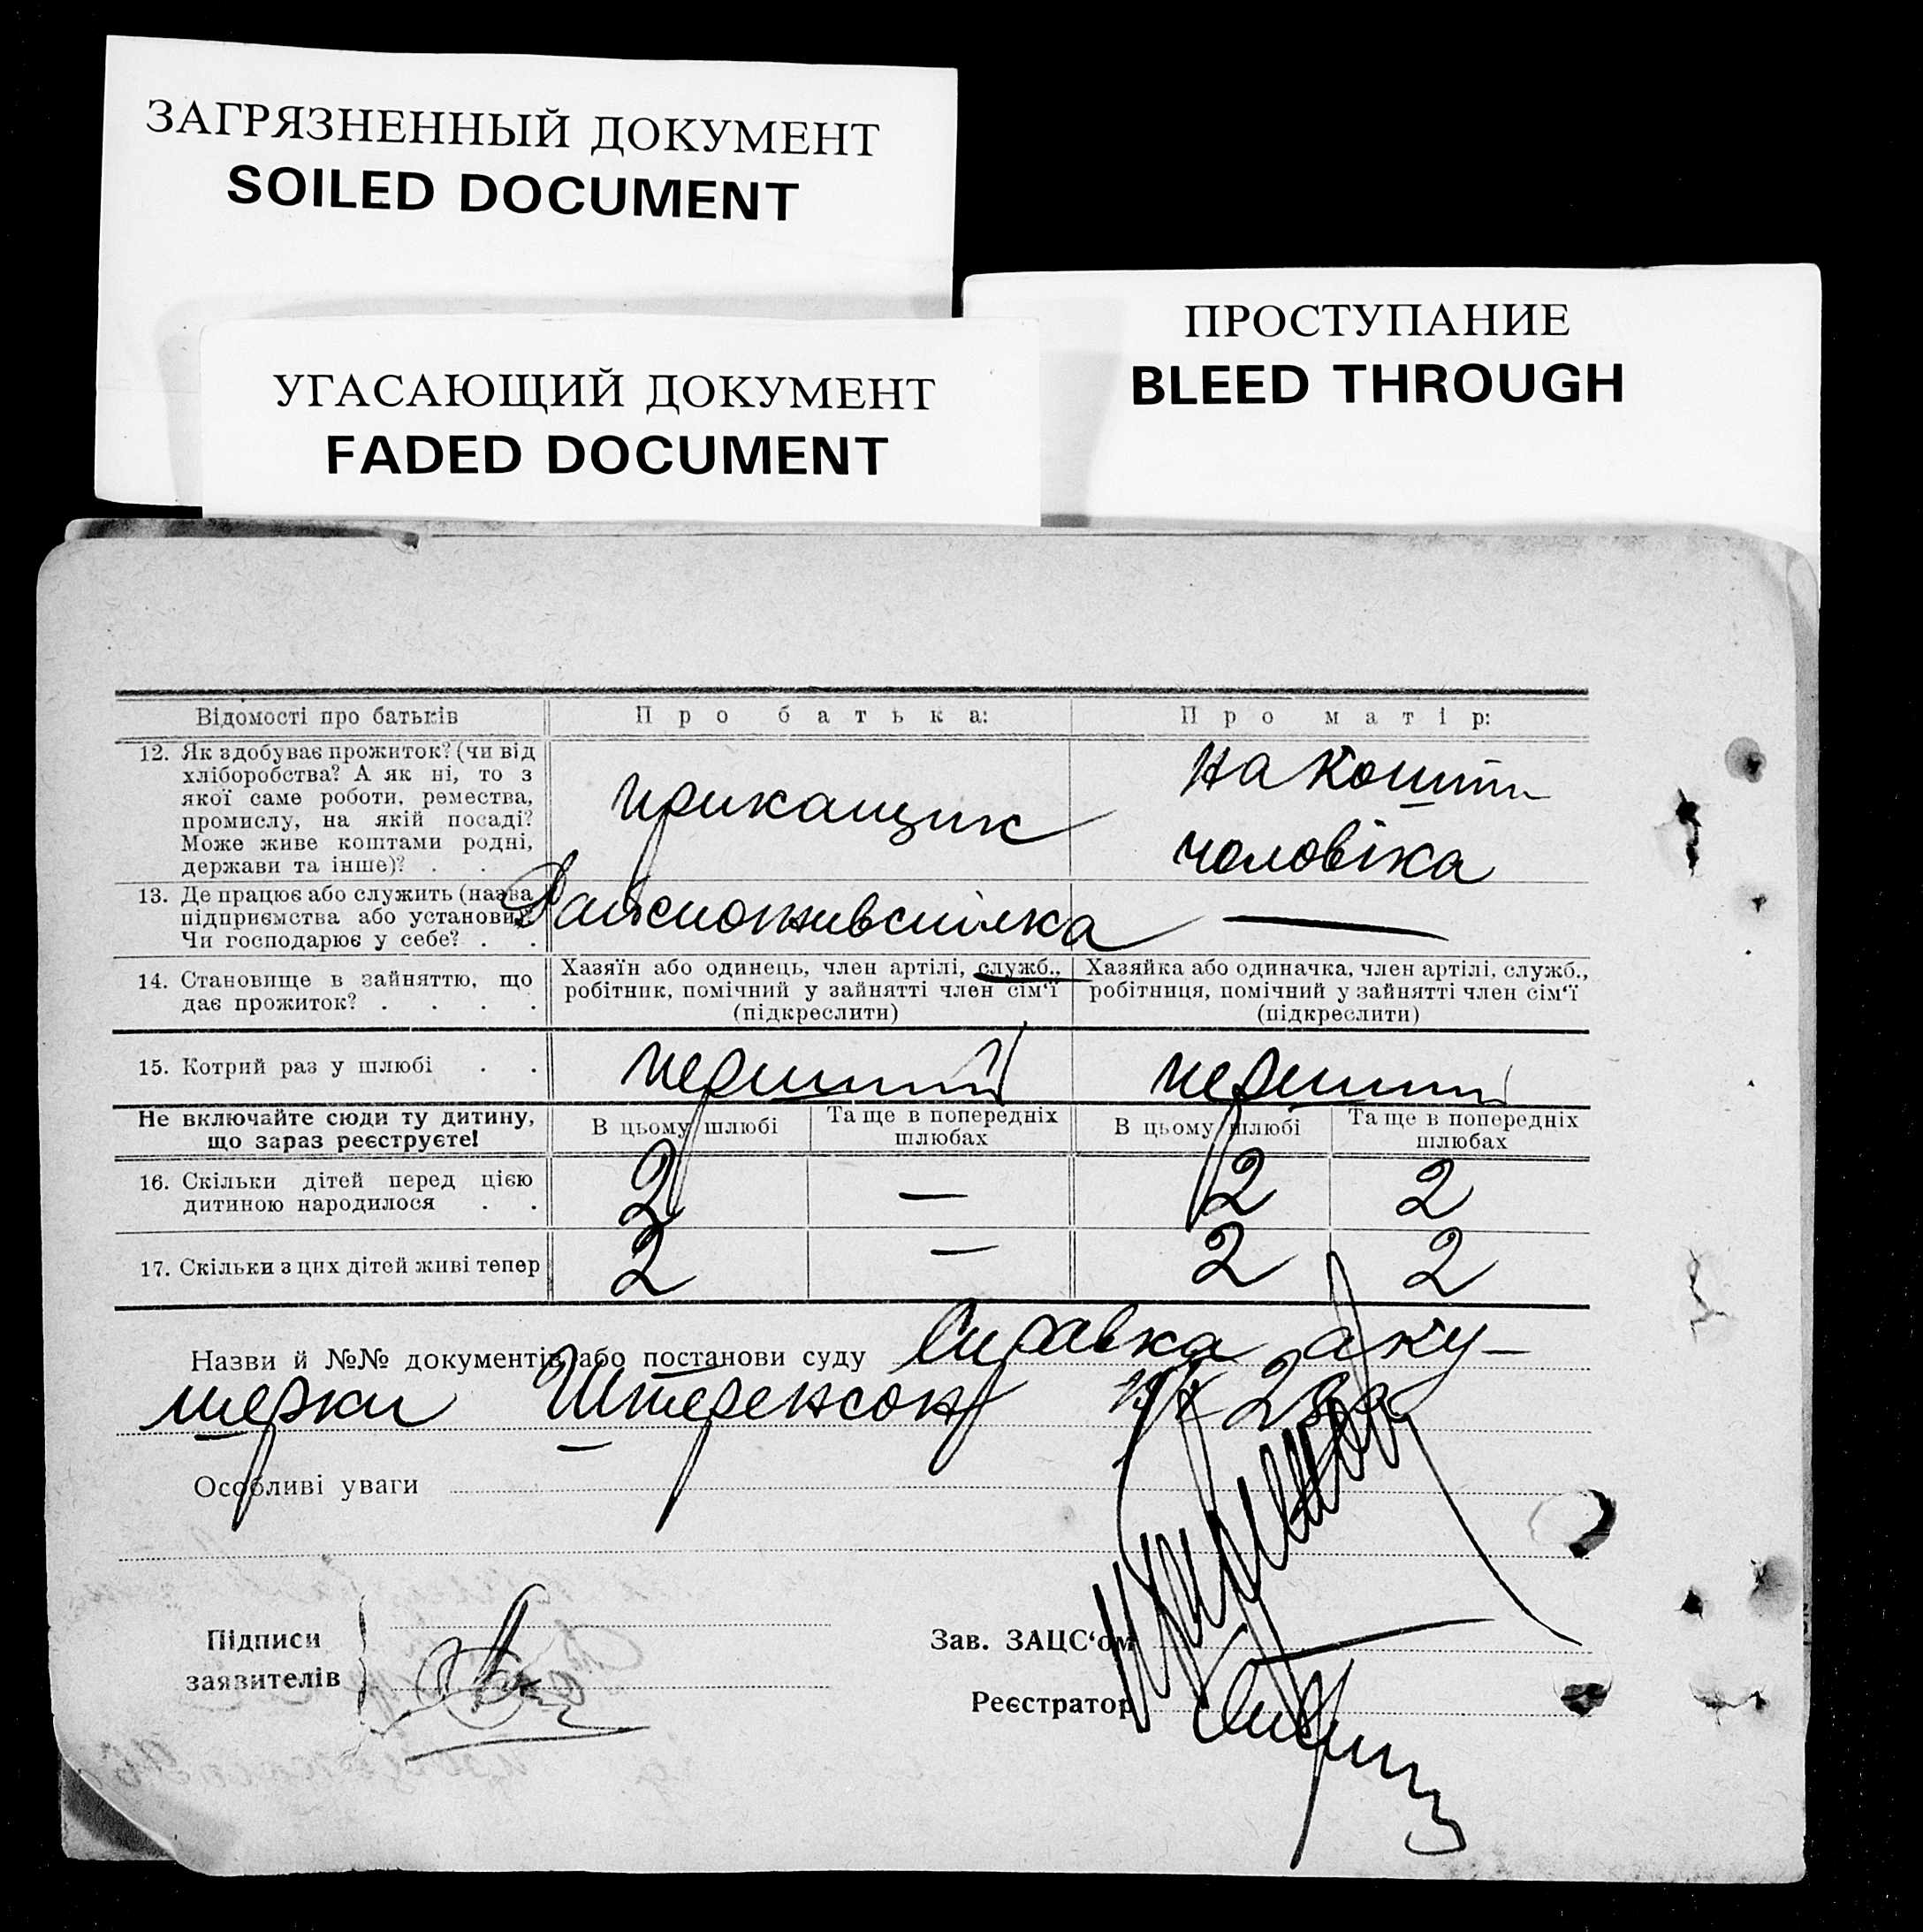 ЗАГРЯЗНЕННЫЙ ДОКУМЕНТ
SOILED DOCUMENT
УГАСАЮЩИЙ ДОКУМЕНТ
FADED DOCUMENT
ПРОСТУПАНИЕ
BLEED THROUGH
Відомості про батьків
Про батька:
Про матір:
12. Як здобуває прожиток? (чи від
хліборобства? А як ні, то з
якої саме роботи, ремества,
промислу, на якій посаді?
Може живе коштами родні,
держави та інше)? .
прикащик
на кошти
чоловіка
13. Де працює або служить (назва
підприємства або установи)?
Чи господарює у себе? . .
Райспоживспілка
—
14. Становище в зайняттю, що
дає прожиток? . . . .
Хазяїн або одинець, член артілі, служб.,
робітник, помічний у зайнятті член сім'ї
(підкреслити)
Хазяйка або одиначка, член артілі, служб.,
робітниця, помічний у зайнятті член сім'ї
(підкреслити)
15. Котрий раз у шлюбі . .
перший
перший
Не включайте сюди ту дитину,
що зараз реєструєте!
В цьому шлюбі
Та ще в попередніх
шлюбах
В цьому шлюбі
Та ще в попередніх
шлюбах
16. Скільки дітей перед цією
дитиною народилося . .
2 — 2 2
17. Скільки з цих дітей живі тепер
2 — 2 2
Назви й №№ документів або постанови суду Справка аку-
шерки Штеренсон
Особливі уваги
Підписи
заявителів
Зав. ЗАЦС'ом
Реєстратор